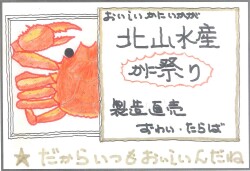 おいしいかにいかが
北山水産
かに祭り
製造直売
ずわい・たらば
★だからいつもおいしいんだね